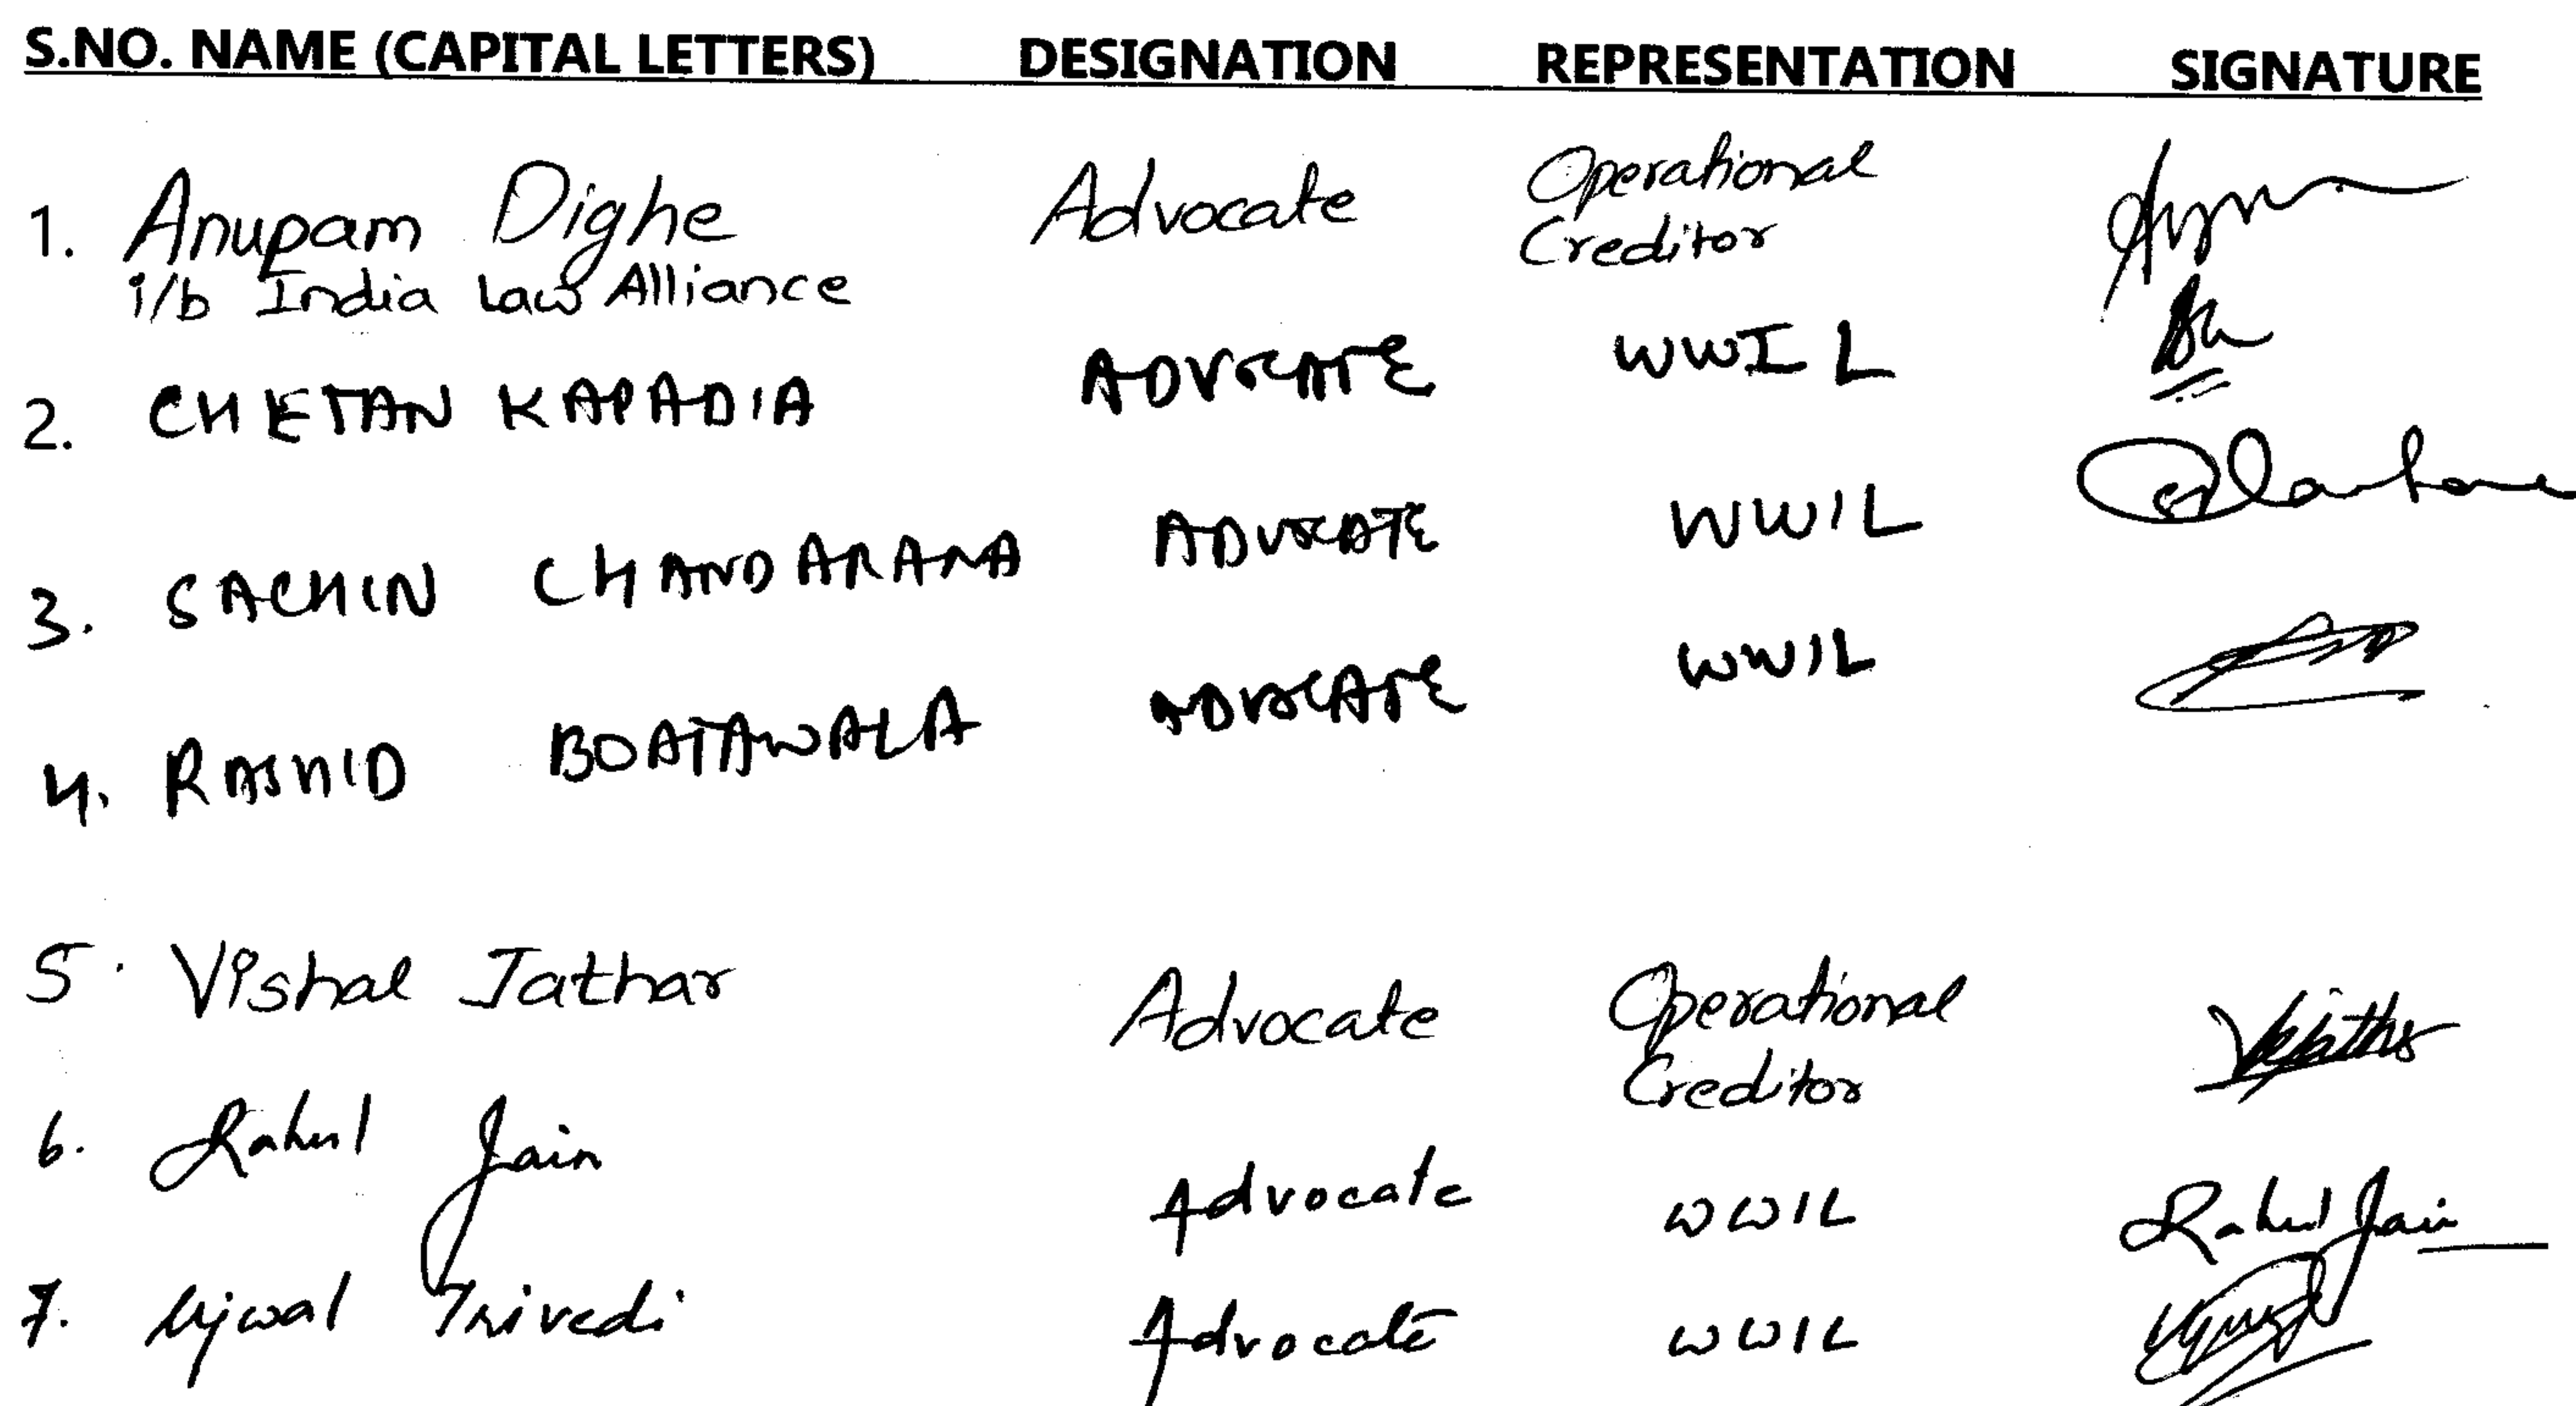 S.NO. NAME (CAPITAL LETTERS) DESIGNATION REPRESENTATION SIGNATURE
1. Anupam Dighe Advocate Operational Creditor
i/b India Law Alliance
2. CHETAN KAPADIA ADVOCATE WWIL
3. SACHIN CHANDARANA ADVOCATE WWIL
4. RASHID BOATAWALA ADVOCATE WWIL
5. Vishal Jathar Advocate Operational Creditor
6. Rahul Jain Advocate WWIL Rahul Jain
7. Ujwal Trivedi Advocate WWIL